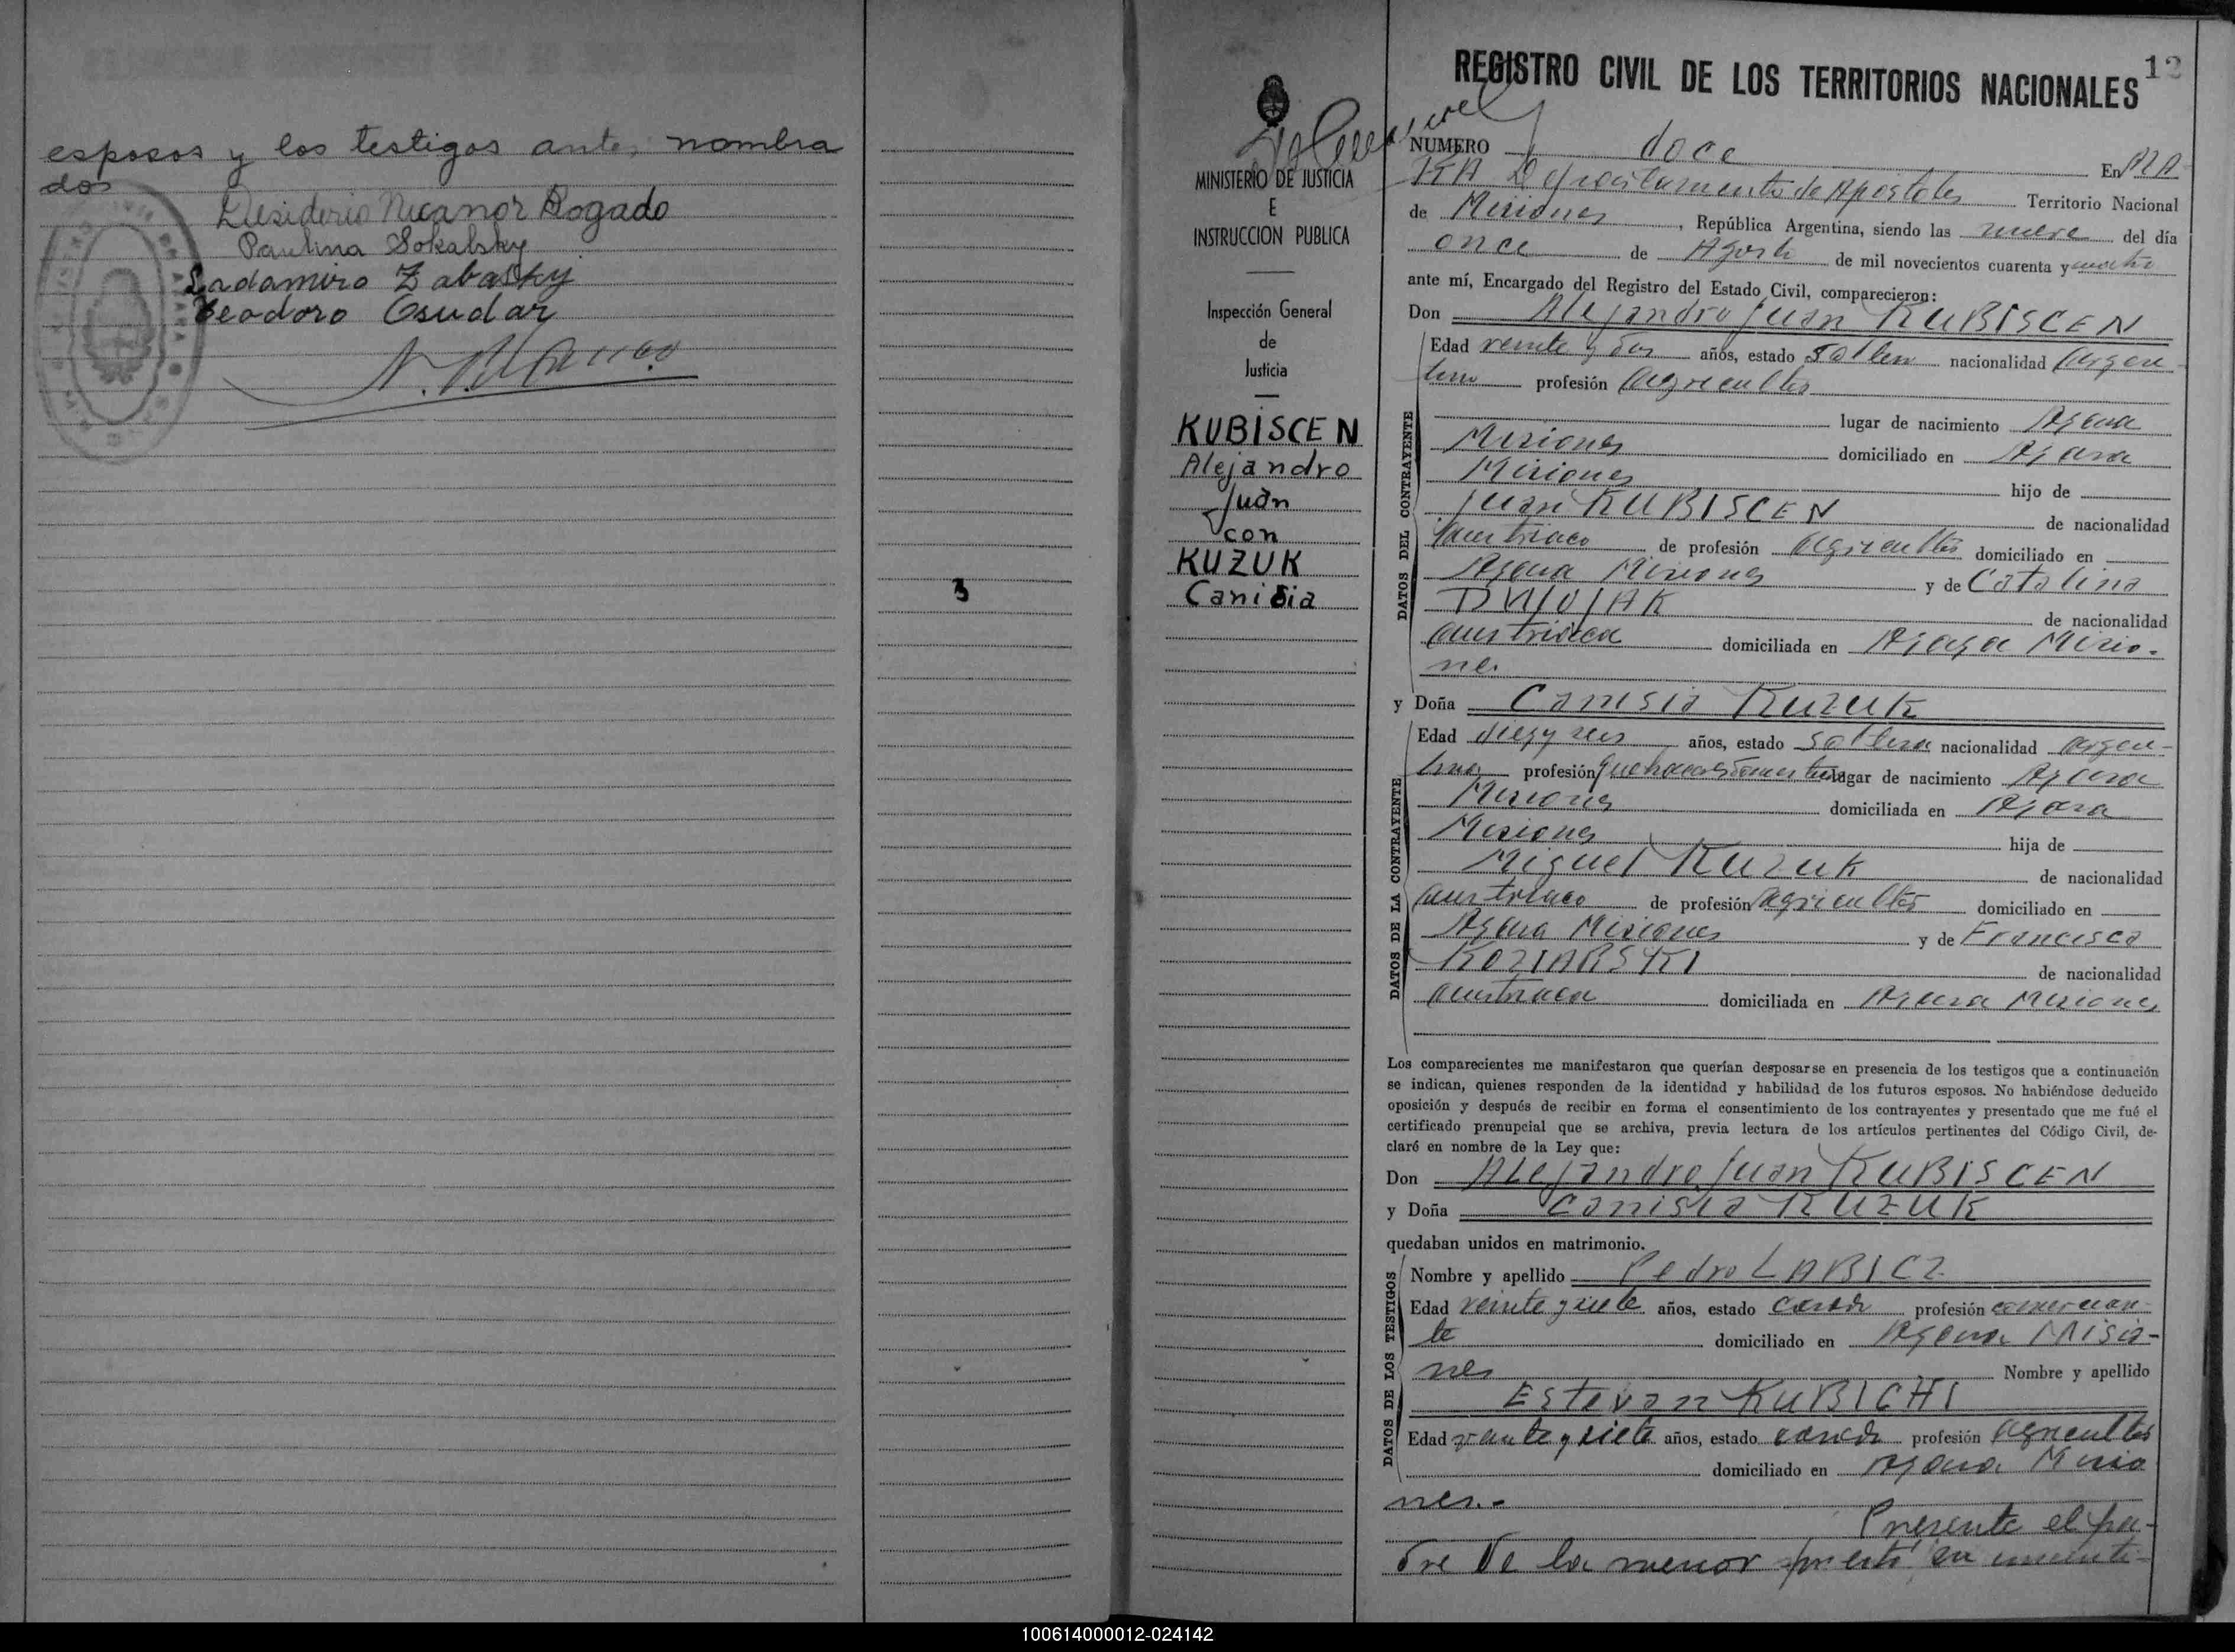 esposos y los testigos antes nombra
dos
Desiderio Nicanor Bogado
Paulina Sokalsky
Ladamiro Zabasky
Teodoro Osudar
3
MINISTERIO DE JUSTICIA
E
INSTRUCCION PUBLICA
Inspección General
de
Justicia
KUBISCEN
Alejandro
Juan
con
KUZUK
Canisia
REGISTRO CIVIL DE LOS TERRITORIOS NACIONALES
12
NUMERO doce En AZA
RA Departamento de Apostoles Territorio Nacional
de Misiones, República Argentina, siendo las nueve del día
once de Agosto de mil novecientos cuarenta y cuatro
ante mí, Encargado del Registro del Estado Civil, comparecieron:
Don Alejandro Juan KUBISCEN
DATOS DEL CONTRAYENTE
Edad veinte y dos años, estado soltero nacionalidad Argen-
tino profesión Agricultor
lugar de nacimiento Azara
Misiones domiciliado en Azara
Misiones hijo de
Juan KUBISCEN de nacionalidad
austriaco de profesión agricultor domiciliado en
Azara Misiones y de Catalina
DWOJAK de nacionalidad
austriaca domiciliada en Azara Misio-
nes
y Doña Canisia Kuzuk
DATOS DE LA CONTRAYENTE
Edad diez y seis años, estado soltera nacionalidad argen-
tina profesión quehaceres domesticos lugar de nacimiento Azara
Misiones domiciliada en Azara
Misiones hija de
Miguel Kuzuk de nacionalidad
austriaco de profesión agricultor domiciliado en
Azara Misiones y de Francisca
KOZIARSKI de nacionalidad
austriaca domiciliada en Azara Misiones
Los comparecientes me manifestaron que querían desposarse en presencia de los testigos que a continuación
se indican, quienes responden de la identidad y habilidad de los futuros esposos. No habiéndose deducido
oposición y después de recibir en forma el consentimiento de los contrayentes y presentado que me fué el
certificado prenupcial que se archiva, previa lectura de los artículos pertinentes del Código Civil, de-
claré en nombre de la Ley que:
Don Alejandro Juan KUBISCEN
y Doña Canisia KUZUK
quedaban unidos en matrimonio.
DATOS DE LOS TESTIGOS
Nombre y apellido Pedro LABICZ
Edad veinte y siete años, estado casado profesión comercian-
te domiciliado en Azara Misio-
nes Nombre y apellido
Estevan KUBICHI
Edad veinte y siete años, estado casado profesión agricultor
domiciliado en Azara Misio
nes.-
Presente el pa-
dre de la menor presta su
100614000012-024142